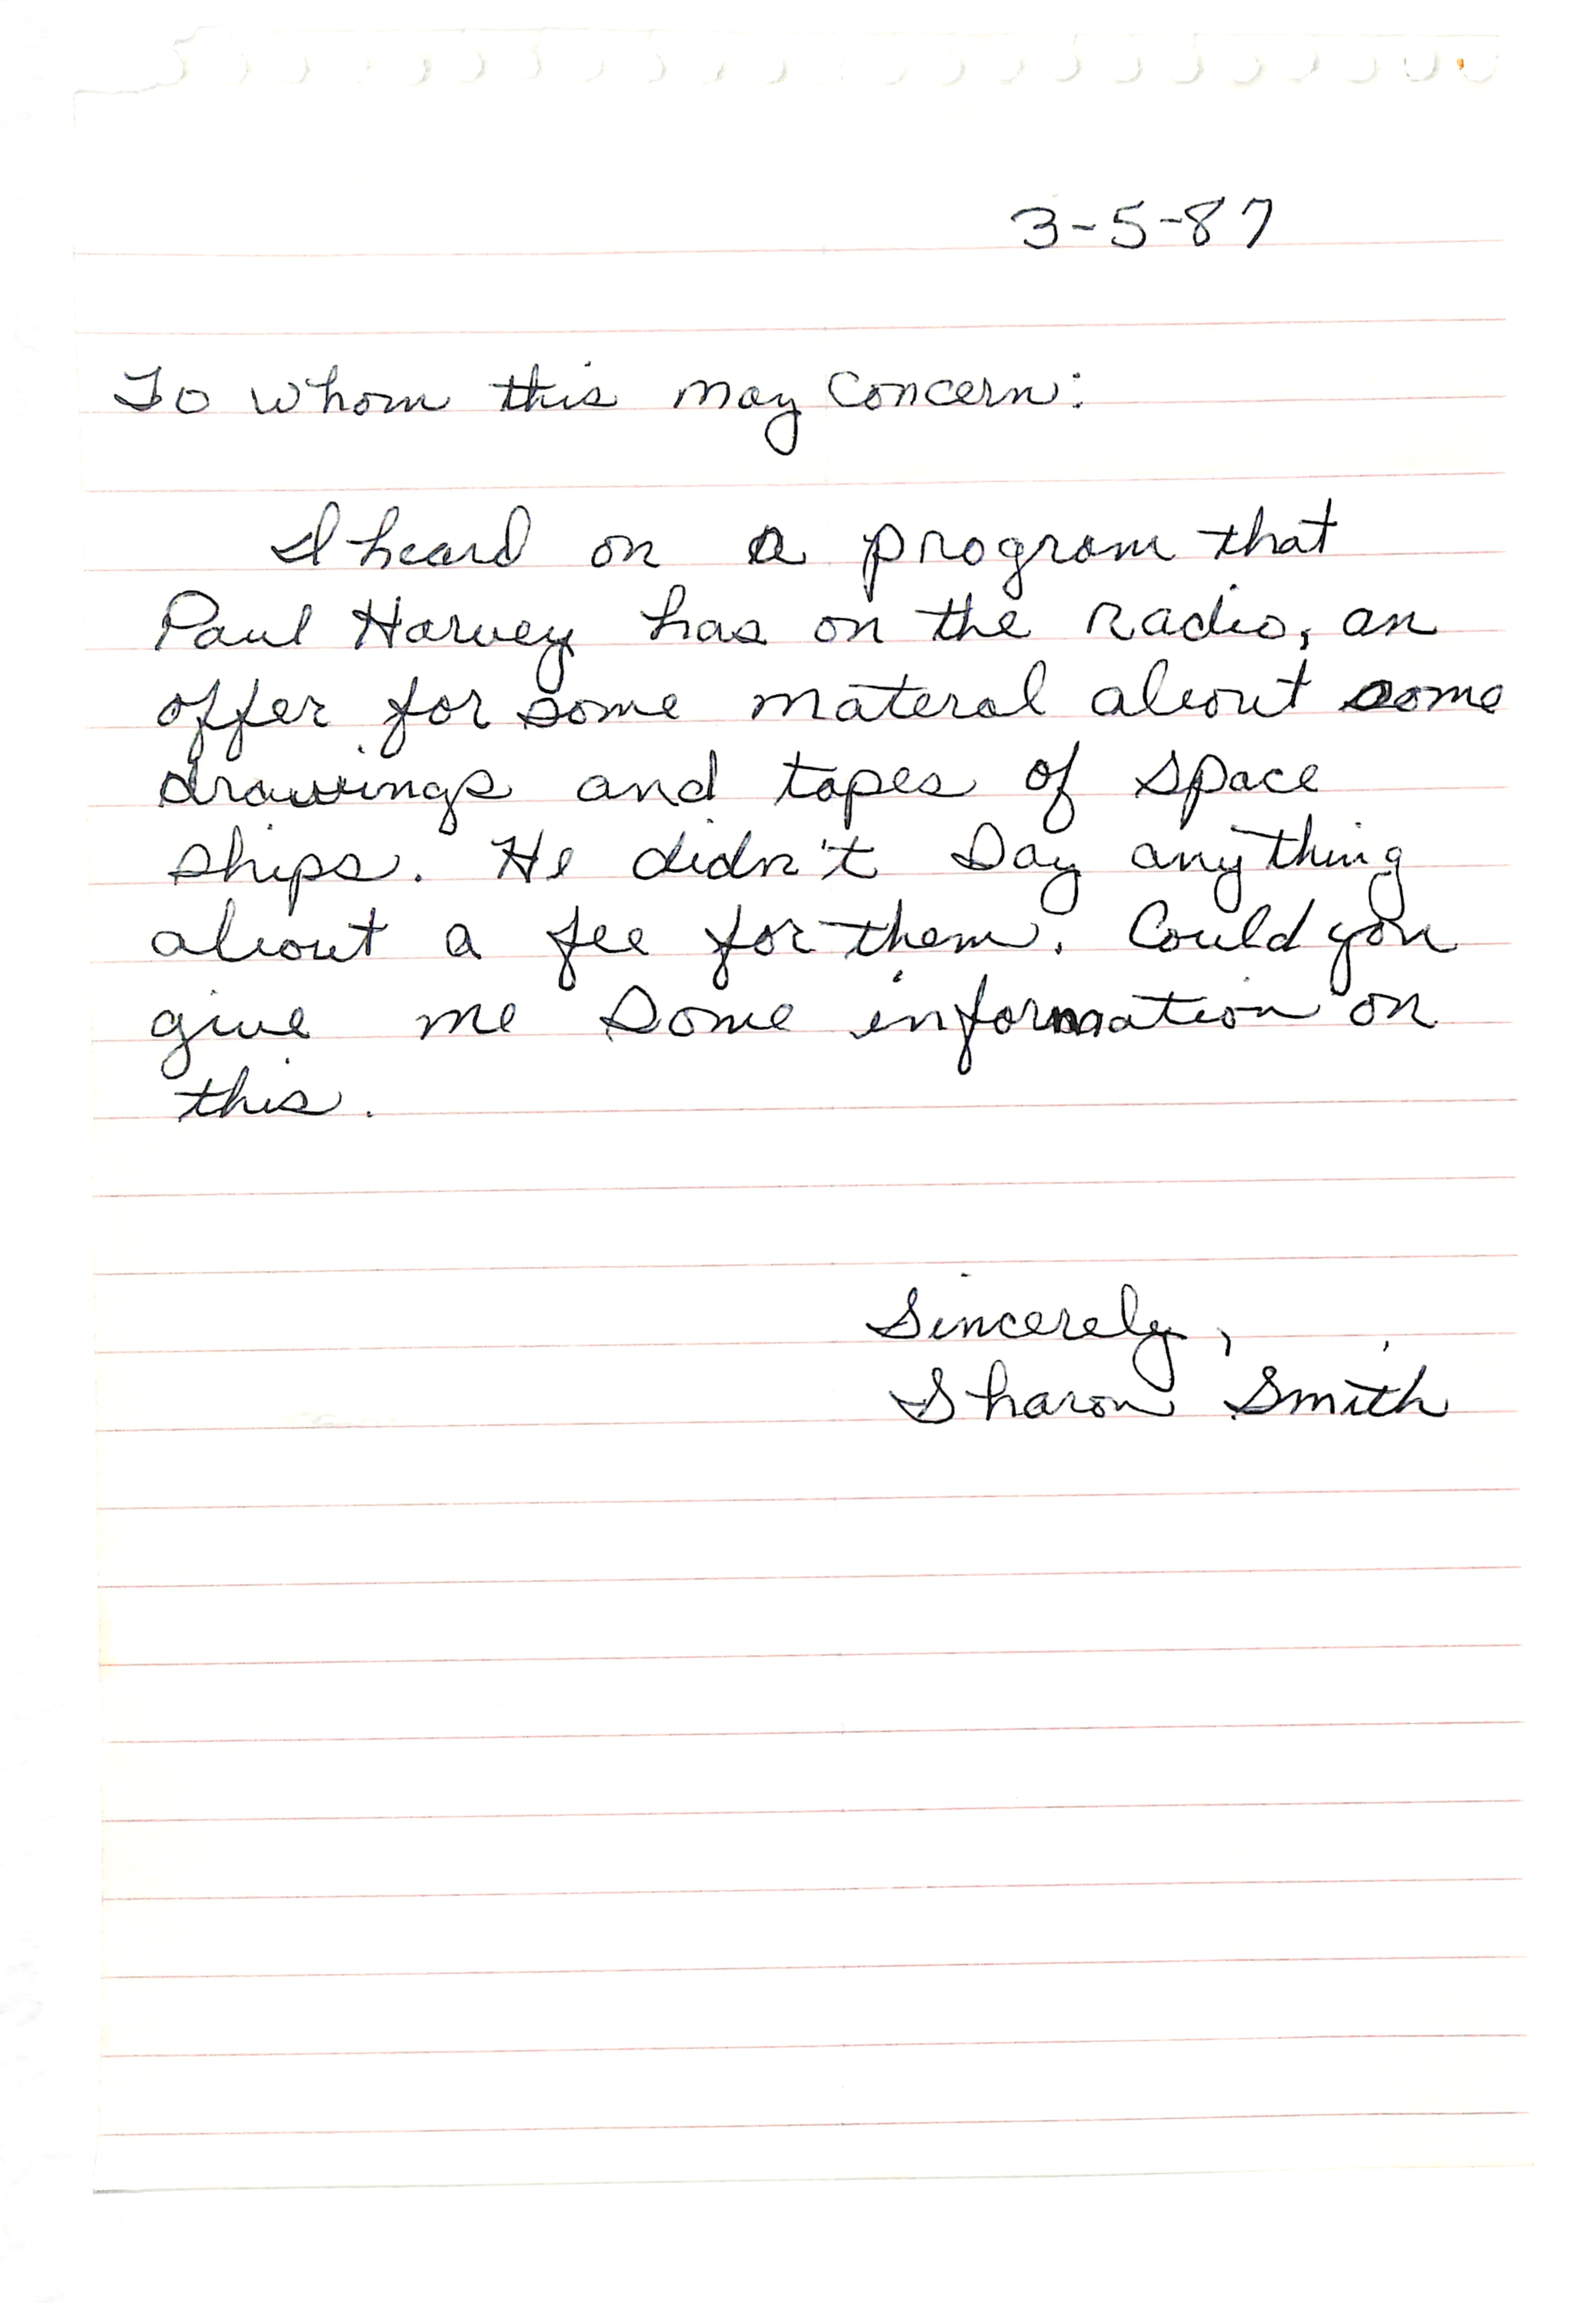 3-5-87
To whom this may Concern:
I heard on a program that
Paul Harvey has on the radio, an
offer for some materal about some
drawings and tapes of space
ships. He didn't say anything
about a fee for them. Could you
give me some information on
this.
Sincerely,
Sharon Smith